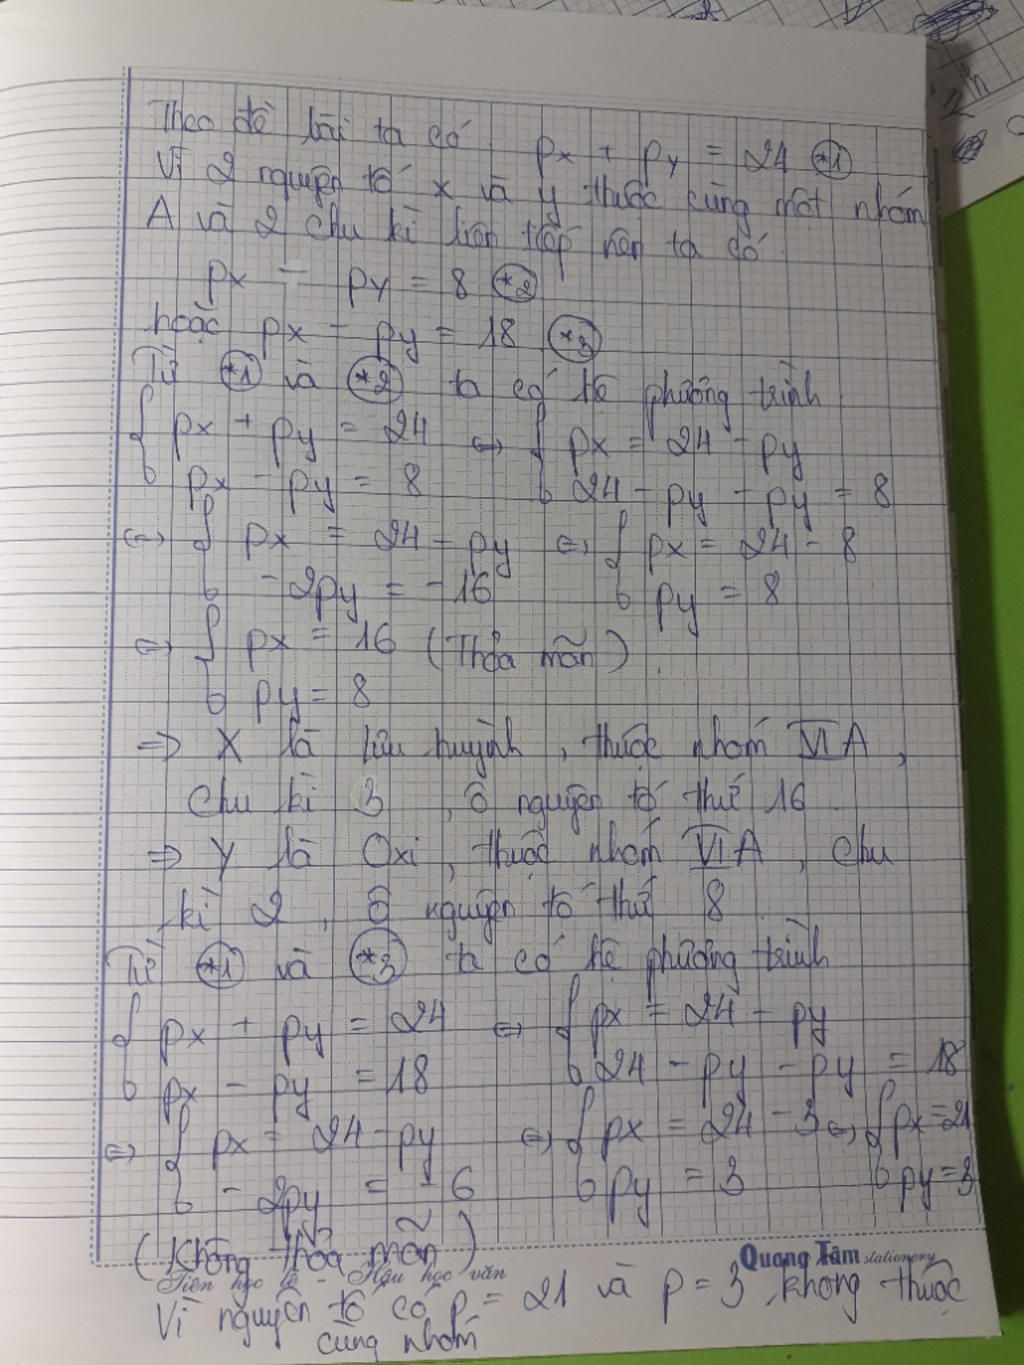 Theo đề bài ta có px + py = 24 (*1)
Vì 2 nguyên tố x và y thuộc cùng một nhóm
A và 2 chu kì liên tiếp nên ta có
px - py = 8 (*2)
hoặc px - py = 18 (*3)
Từ (*1) và (*2) ta có hệ phương trình
{ px + py = 24 <=> { px = 24 - py
px - py = 8 24 - py - py = 8
<=> { px = 24 - py <=> { px = 24 - 8
- 2py = - 16 py = 8
<=> { px = 16 (Thỏa mãn)
py = 8
=> X là lưu huỳnh, thuộc nhóm VI A,
Chu kì 3, ô nguyên tố thứ 16
=> Y là Oxi, thuộc nhóm VI A, chu
kì 2, ô nguyên tố thứ 8
Từ (*1) và (*3) ta có hệ phương trình
{ px + py = 24 <=> { px = 24 - py
px - py = 18 24 - py - py = 18
<=> { px = 24 - py <=> { px = 24 - 3 <=> { px = 21
- 2py = - 6 py = 3 py = 3
(Không thỏa mãn)
Quang Tâm stationery
Tiên học lễ - Hậu học văn
Vì nguyên tố có p = 21 và p = 3 không thuộc
cùng nhóm